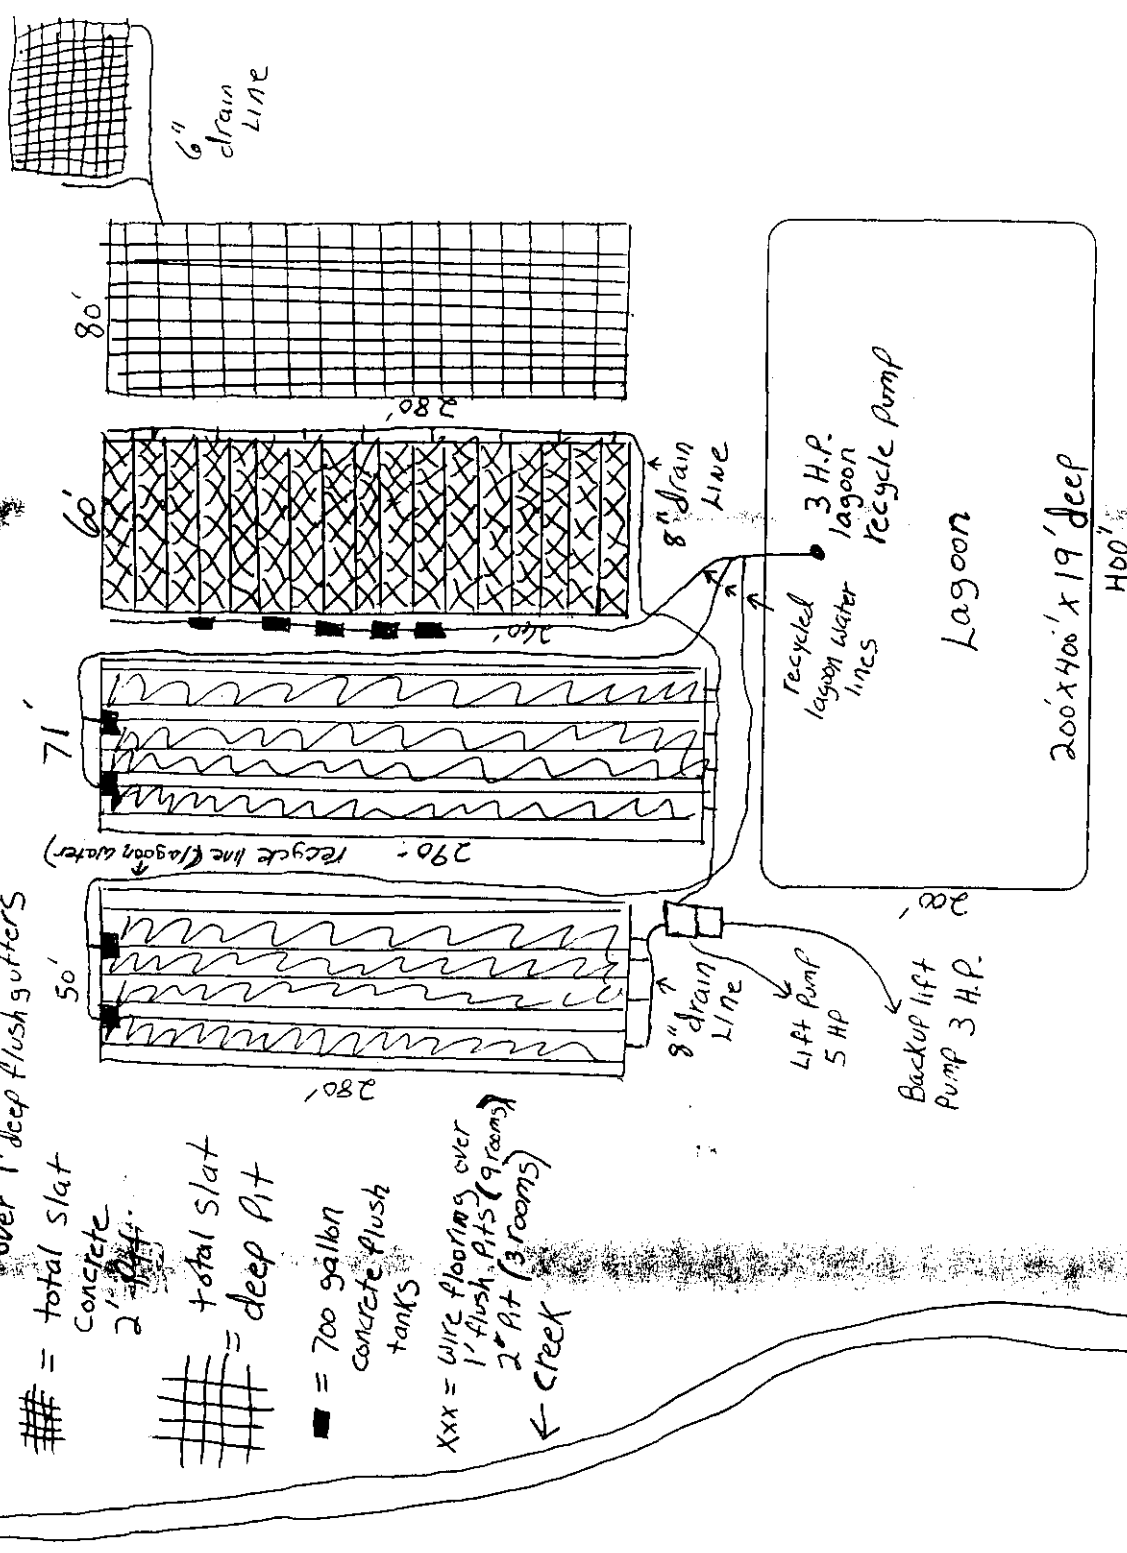 over 1' deep flush gutters
= total slat
concrete
2'
= total slat
deep pit
= 700 gallon
concrete flush
tanks
xxx = wire flooring over
1' flush pits (9 rooms)
2' pit (3 rooms)
← creek
50'
280'
recycle line (lagoon water)
71'
290'
60'
240'
80'
280'
6"
drain
Line
8" drain
Line
8" drain
Line
Lift Pump
5 HP
Backup lift
Pump 3 H.P.
recycled
lagoon water
lines
3 H.P.
lagoon
recycle pump
Lagoon
200' x 400' x 19' deep
400'
200'